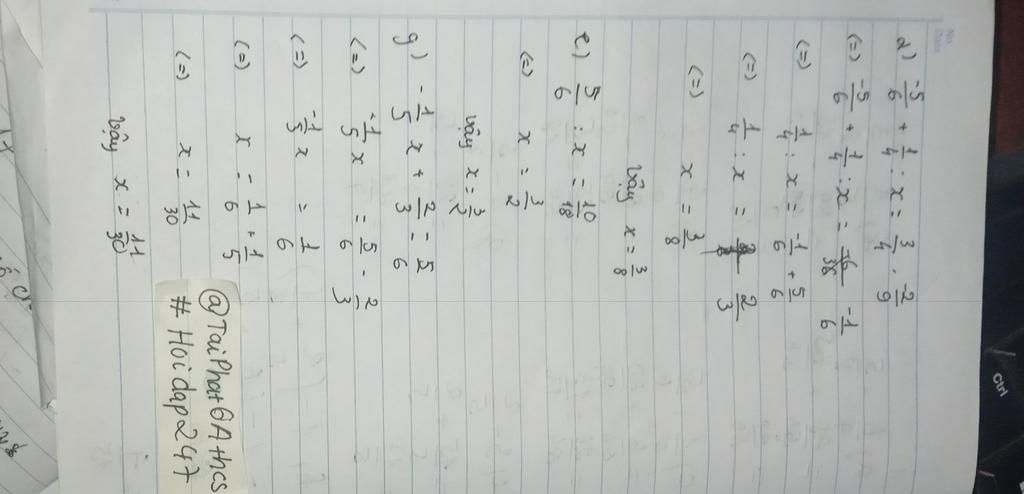 No.
Date
d) -5/6 + 1/4 : x = 3/4 . -2/9
(=) -5/6 + 1/4 : x = -1/6
(=) 1/4 : x = -1/6 + 5/6
(=) 1/4 : x = 2/3
(=) x = 3/8
Vậy x = 3/8
e) 5/6 : x = 10/18
(=) x = 3/2
Vậy x = 3/2
g) -1/5 x + 2/3 = 5/6
(=) -1/5 x = 5/6 - 2/3
(=) -1/5 x = 1/6
(=) x = 1/6 + 1/5
(=) x = 11/30
Vậy x = 11/30
@TaiPhatGAthcs
# Hoidap247
Ctrl